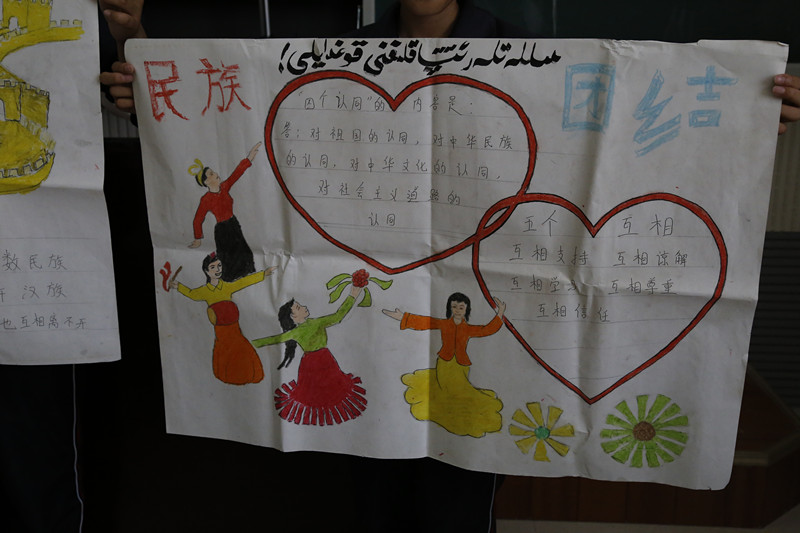 مىللەتلەر ئىتتىپاقلىقىنى قوغدايلى!
民族
团结
"四个认同"的内容是：
答：对祖国的认同，对中华民族
的认同，对中华文化的认同，
对社会主义道路的
认同
五个 互相
互相支持 互相谅解
互相学习 互相尊重
互相信任
数民族
汉族
也互相离不开